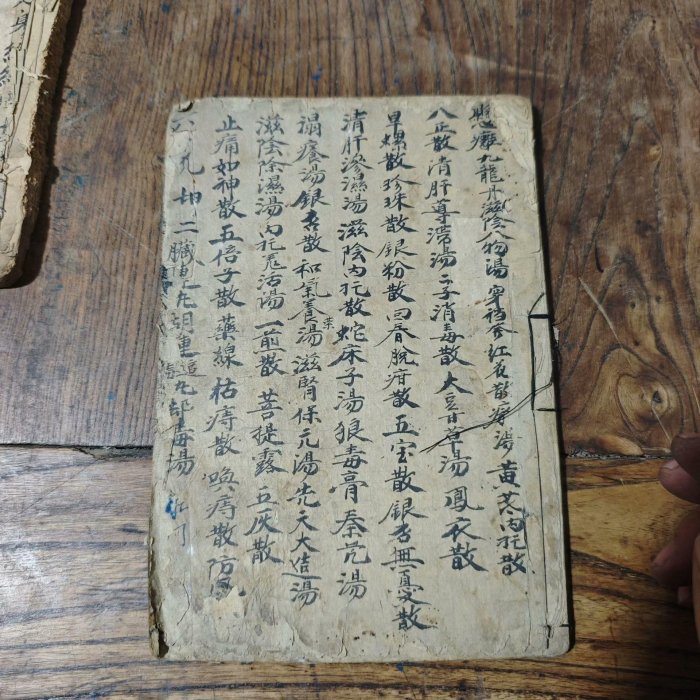 懸癰九龍丹滋陰八物湯寧 紅 散 湯黄芪内托散
八正散清肝導滯湯二子消毒散大豆甘草湯鳳衣散
旱螺散珍珠散銀粉散回春脫疳散五宝散銀杏無憂散
清肝滲濕湯滋陰内托散蛇床子湯狼毒膏秦艽湯
溻癢湯銀杏散和氣養荣湯滋腎保元湯先天大造湯
滋陰除濕湯内托羌活湯一煎散菩提露五灰散
止痛如神散五倍子散藥線枯痔散喚痔散防風
二臟 丸胡連追毒丸 湯